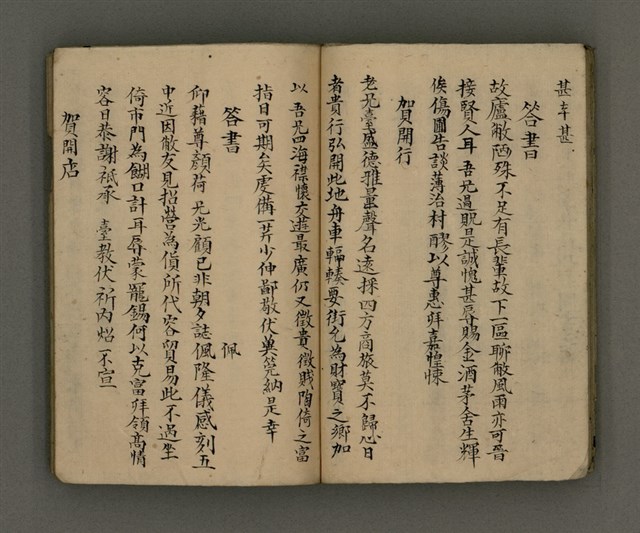 甚幸甚
答書
故廬敝陋殊不足有長輩故下一區聊敝風雨亦可晉
接賢人耳吾兄過眼是誠愧甚辱賜金酒茅舍生輝
俟傷圖告談薄治村醪以尊惠拜嘉惶悚
賀開行
老兄臺盛德雅量聲名遠採四方商旅莫不歸心日
者貴行弘開此地舟車輻輳要街允為財寶之鄉加
以吾兄四海襟懷交遊最廣仍又徵貴徵賤陶倚之富
指日可期矣虔備一芹少伸鄙敬伏兾筦納是幸
答書
仰藉尊顏荷兄光顧已非朝夕誌佩隆儀感刻五
中近因敝友見招營為貨所代客貿易此不過坐
倚市門為餬口計耳辱蒙寵錫何以克富拜領高情
容日恭謝祗承 臺教伏祈內炤不宣
賀開店